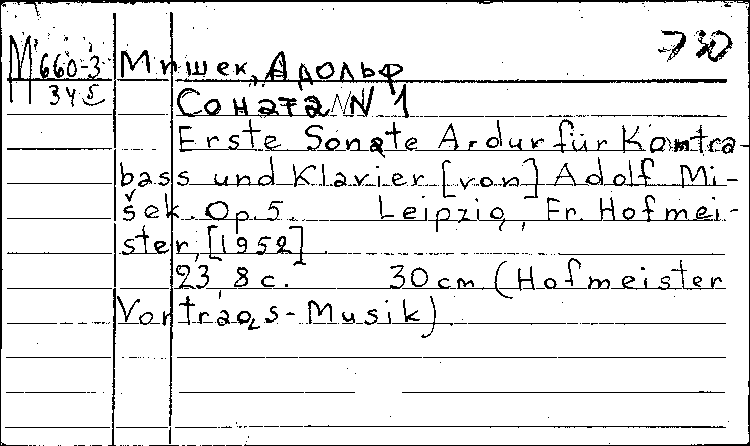 730
М 660-3 Мишек, Адольф
345 Соната N 1
Erste Sonate A-dur für Kontra-
bass und Klavier [von] Adolf Mi-
šek. Op. 5. Leipzig, Fr. Hofmei-
ster, [1952]
23, 8 c. 30 cm (Hofmeister
Vortrags-Musik)